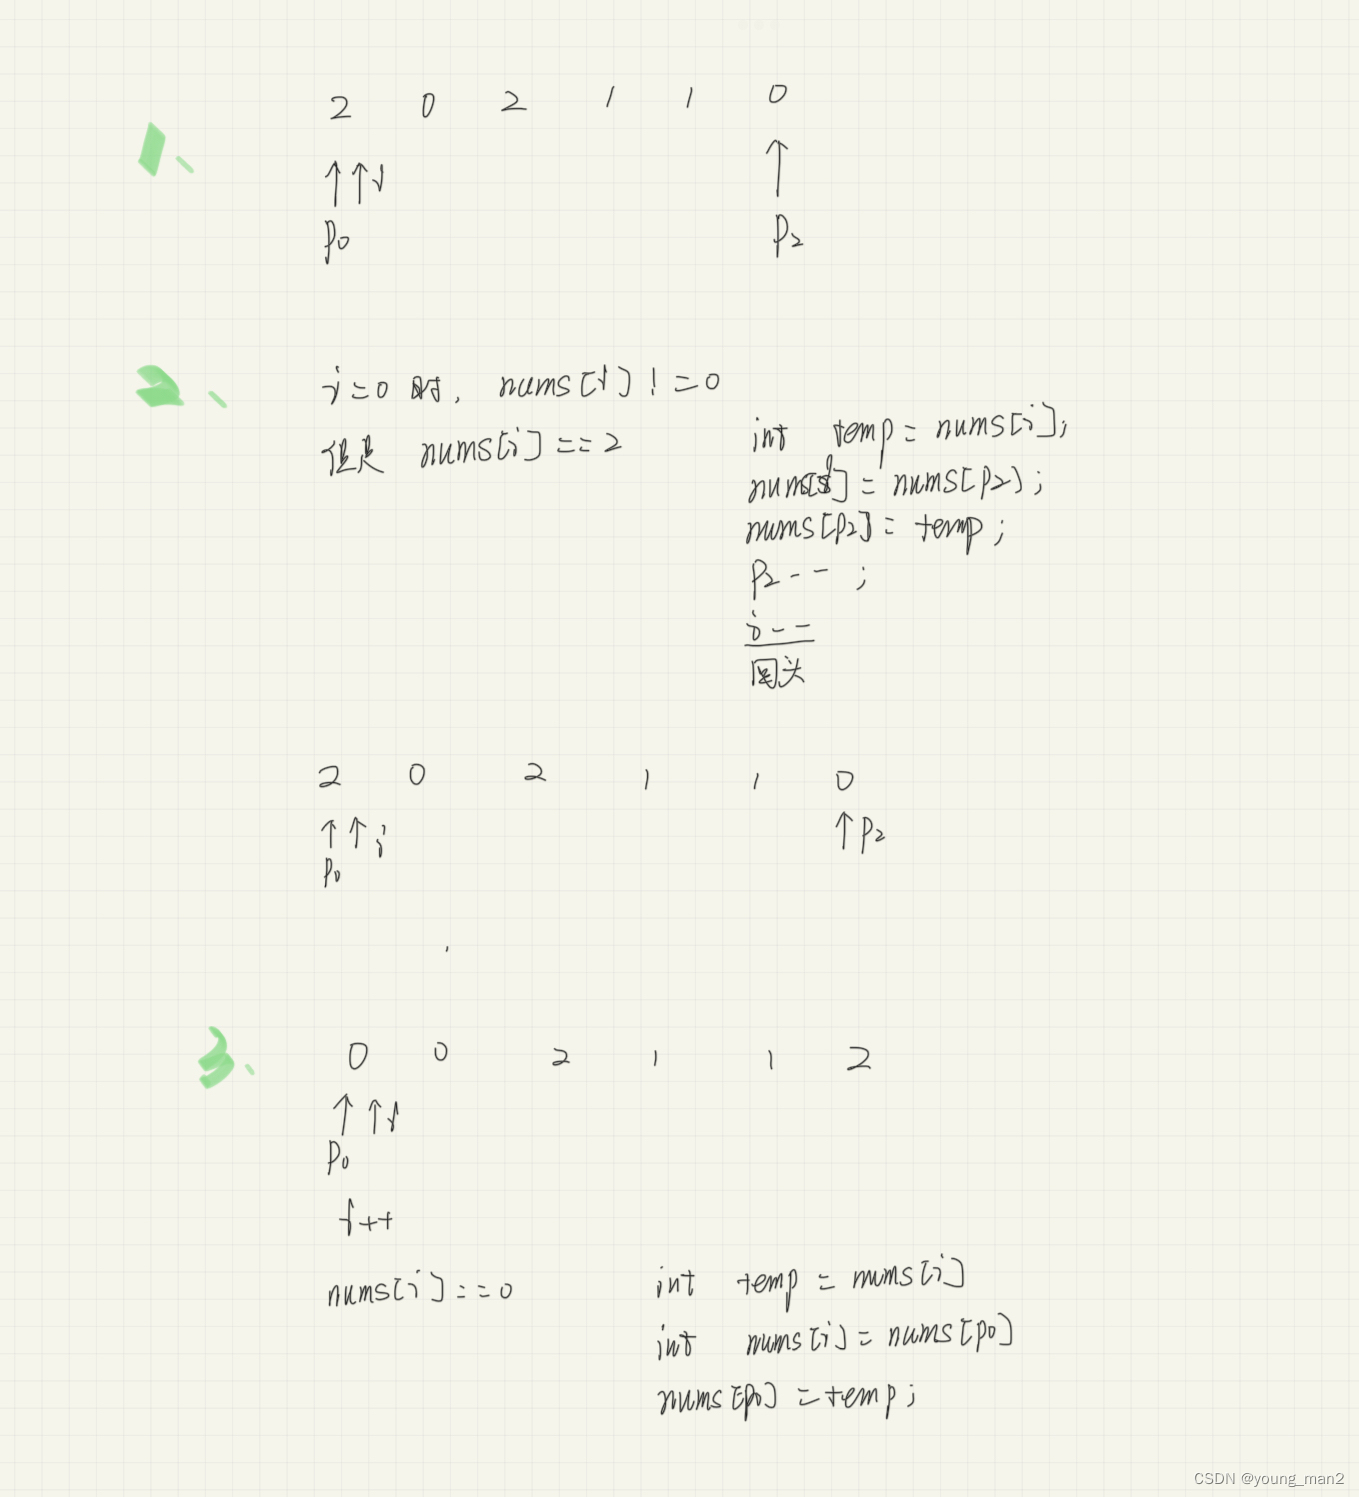 2 0 2 1 1 0
1、
↑ ↑ i ↑
p0 p2
2、
i=0 时, nums[i] !=0
但是 nums[i]==2
int temp = nums[i];
nums[i] = nums[p2];
nums[p2] = temp;
p2-- ;
i--
回头
2 0 2 1 1 0
↑ ↑ i ↑ p2
p0
3、
0 0 2 1 1 2
↑ ↑ i
p0
i++
nums[i]==0
int temp = nums[i]
int nums[i] = nums[p0]
nums[p0] = temp;
CSDN @young_man2